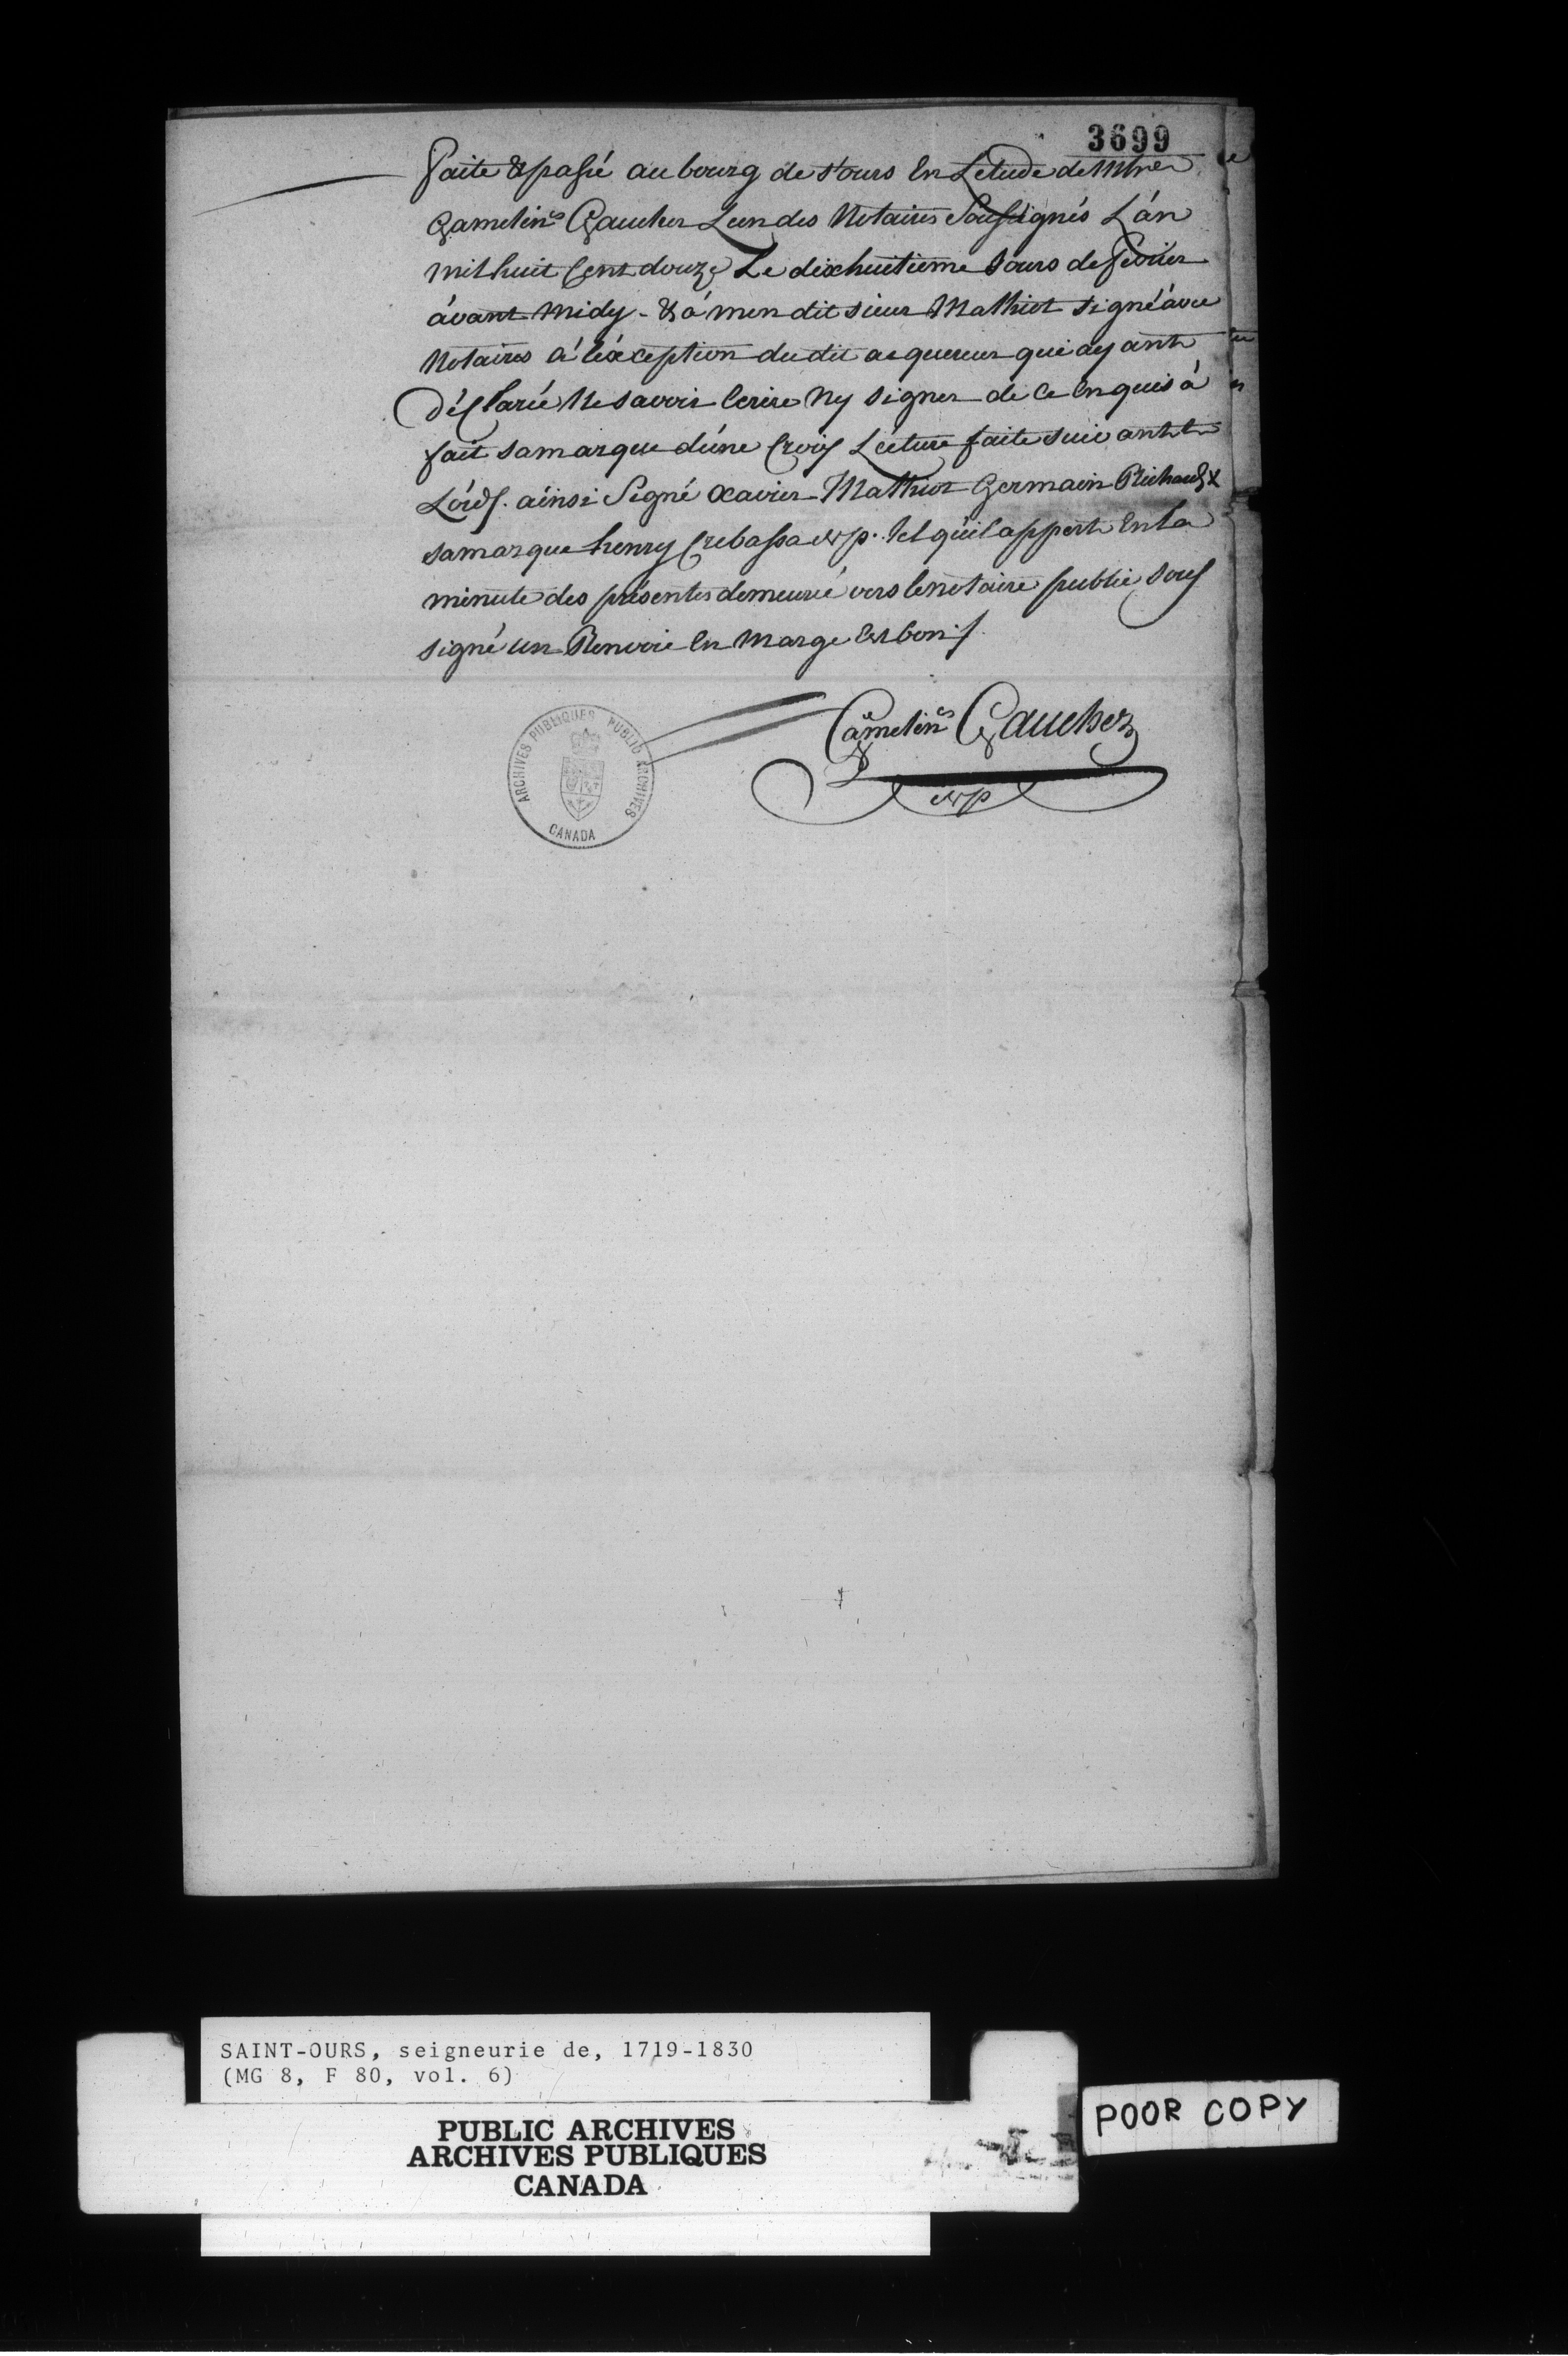 3699
faite & passé au bourg de st ours En Letude de Mtre
Gamelin Gaucher Lun des Notaires Soussignés L'án
mil huit Cent douze Le dixhuitieme Jours de fevrier
ávant Midy - & á mon dit sieur Mathiot signé ávec
Notaires á léxception du dit acquereur qui ayant
Déclarée Ne savoir Ecrire Ny signer de ce Enquis á
fait sa marque d'úne Croix Lecture faite suivant
Lórd. áinsi Signé Xavier Mathiot Germain Richard X
sa marque henry Crebassa N.p. tel qúil appert En La
minute des présentes demeuré vers le notaire public sous
signé un Renvoie En Marge Est bon ./.
Gamelin Gaucher
N.p
ARCHIVES PUBLIQUES PUBLIC ARCHIVES
CANADA
SAINT-OURS, seigneurie de, 1719-1830
(MG 8, F 80, vol. 6)
PUBLIC ARCHIVES
ARCHIVES PUBLIQUES
CANADA
POOR COPY